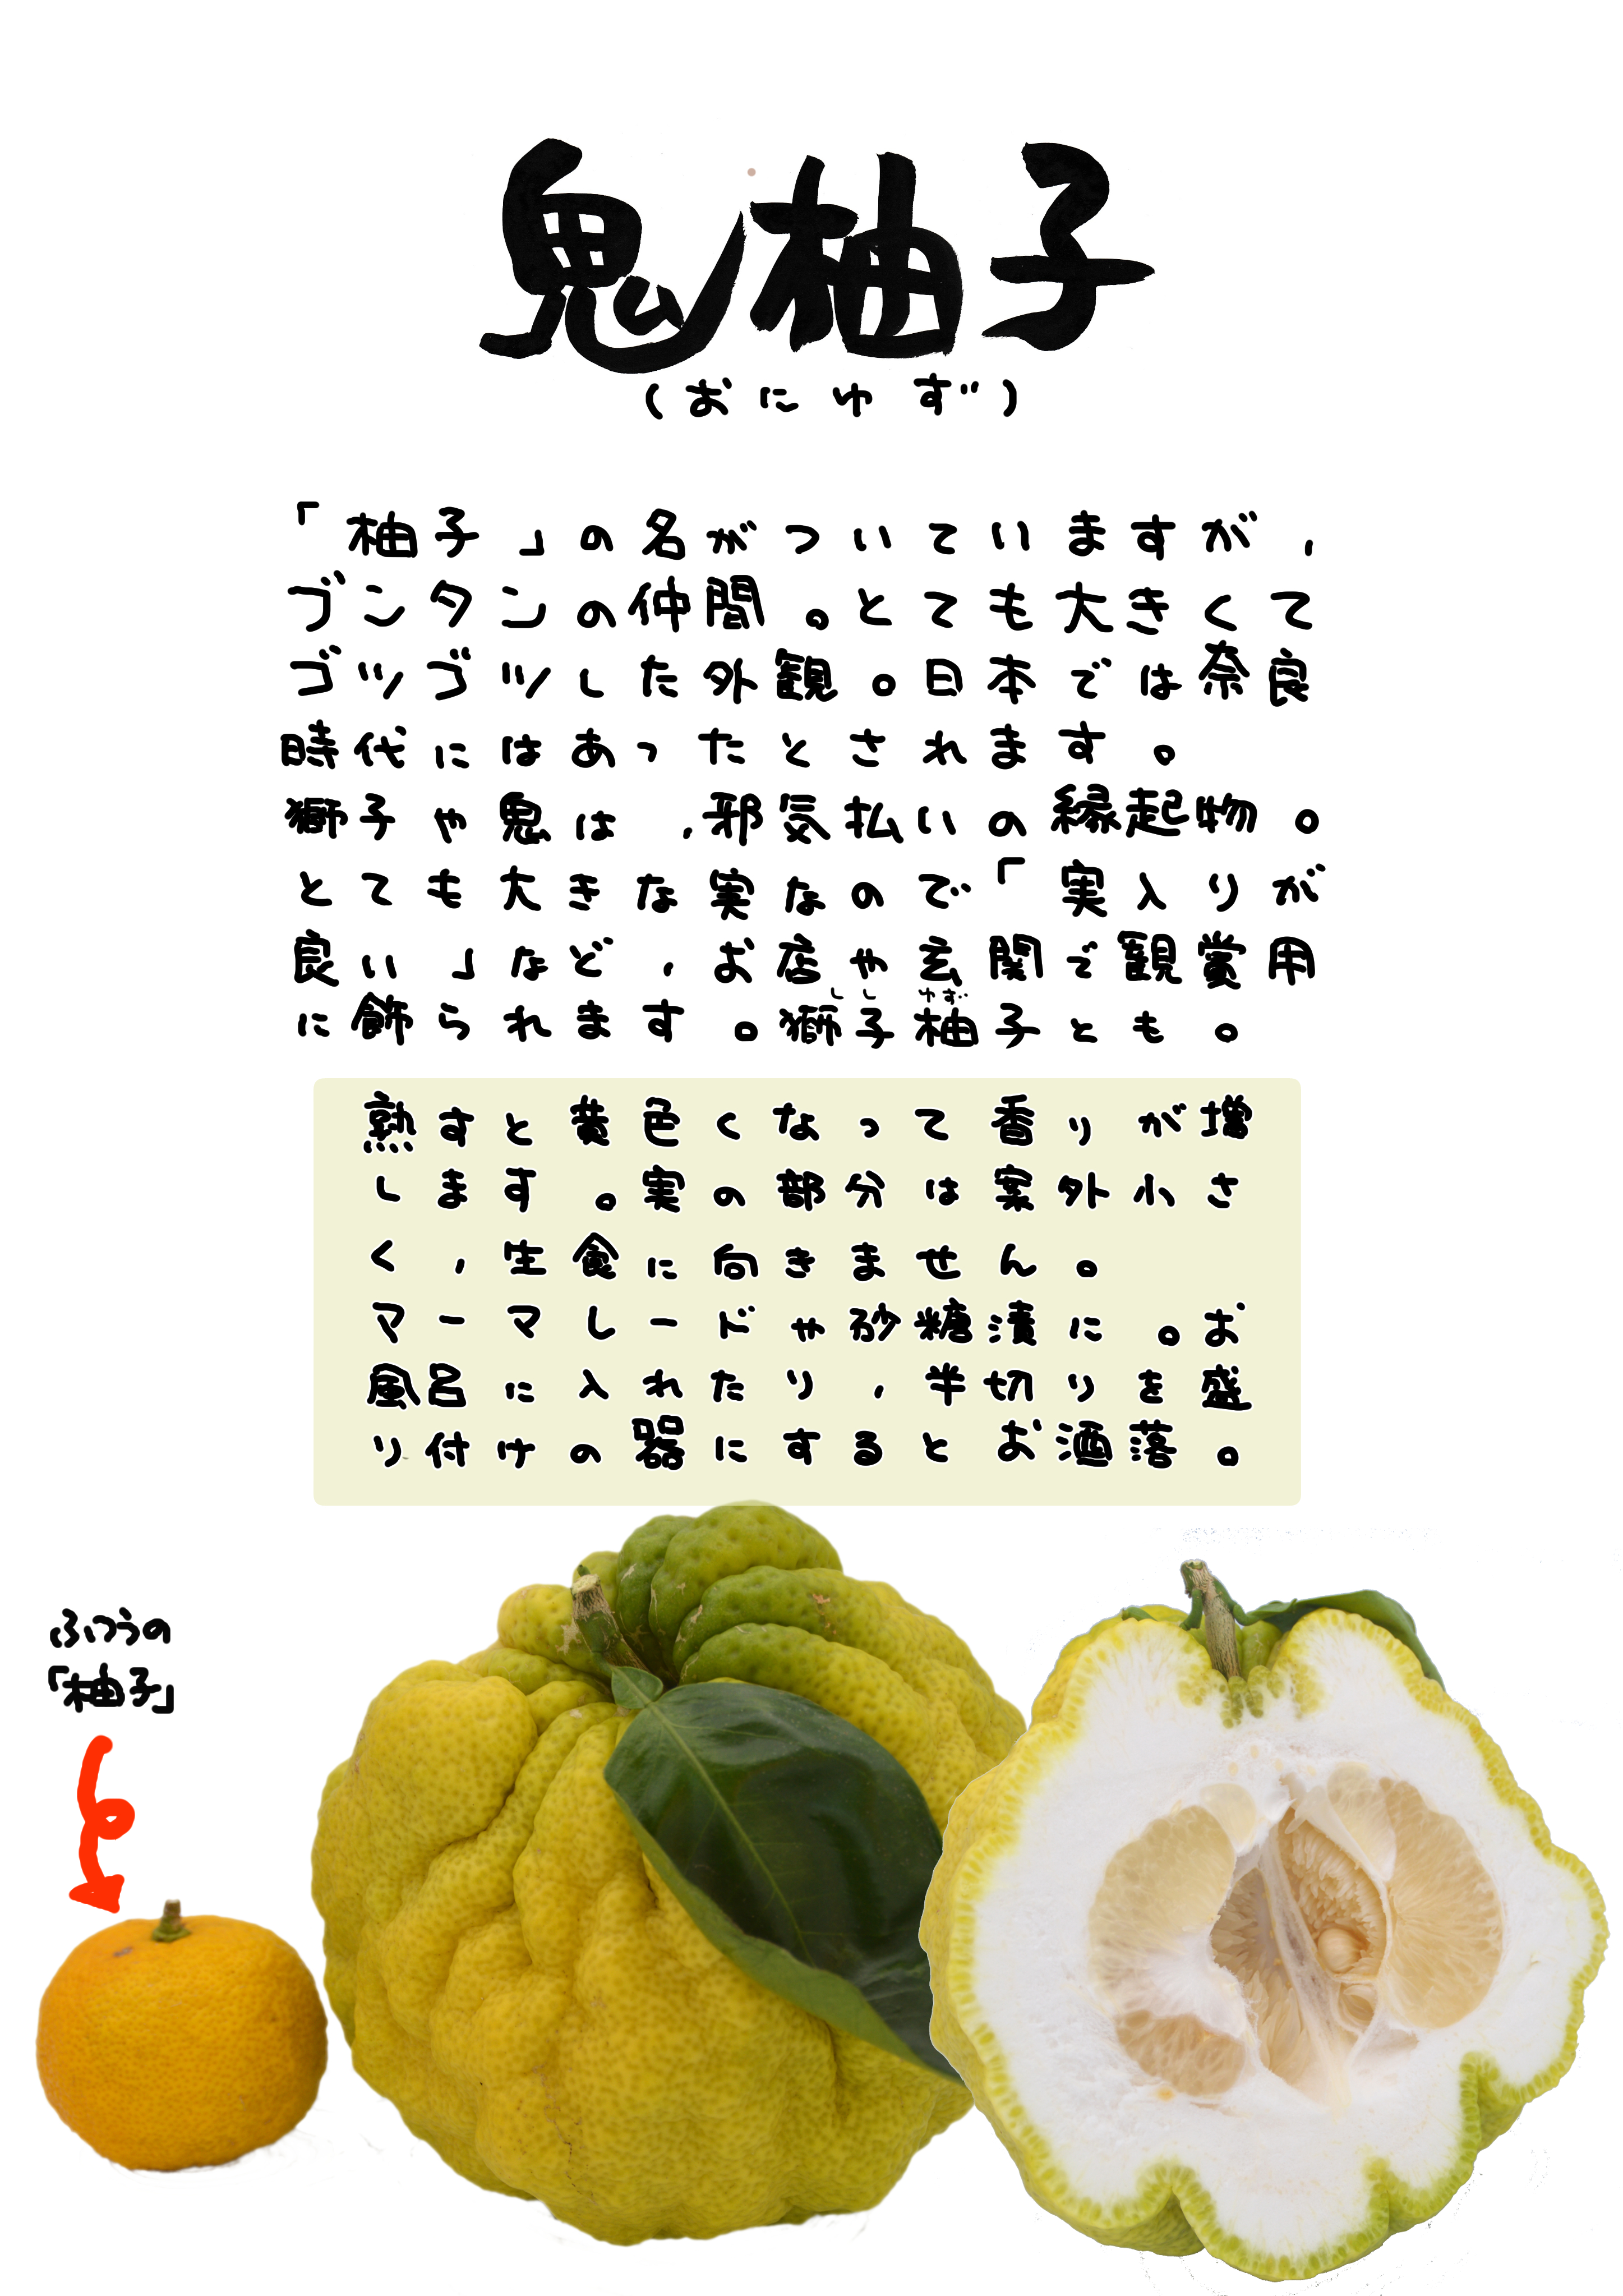 鬼柚子
(おにゆず)
「柚子」の名がついていますが，
ブンタンの仲間。とても大きくて
ゴツゴツした外観。日本では奈良
時代にはあったとされます。
獅子や鬼は，邪気払いの縁起物。
とても大きな実なので「実入りが
良い」など，お店や玄関で観賞用
しし ゆず
に飾られます。獅子柚子とも。
熟すと黄色くなって香りが増
します。実の部分は案外小さ
く，生食に向きません。
マーマレードや砂糖漬に。お
風呂に入れたり，半切りを盛
り付けの器にするとお洒落。
ふつうの
「柚子」